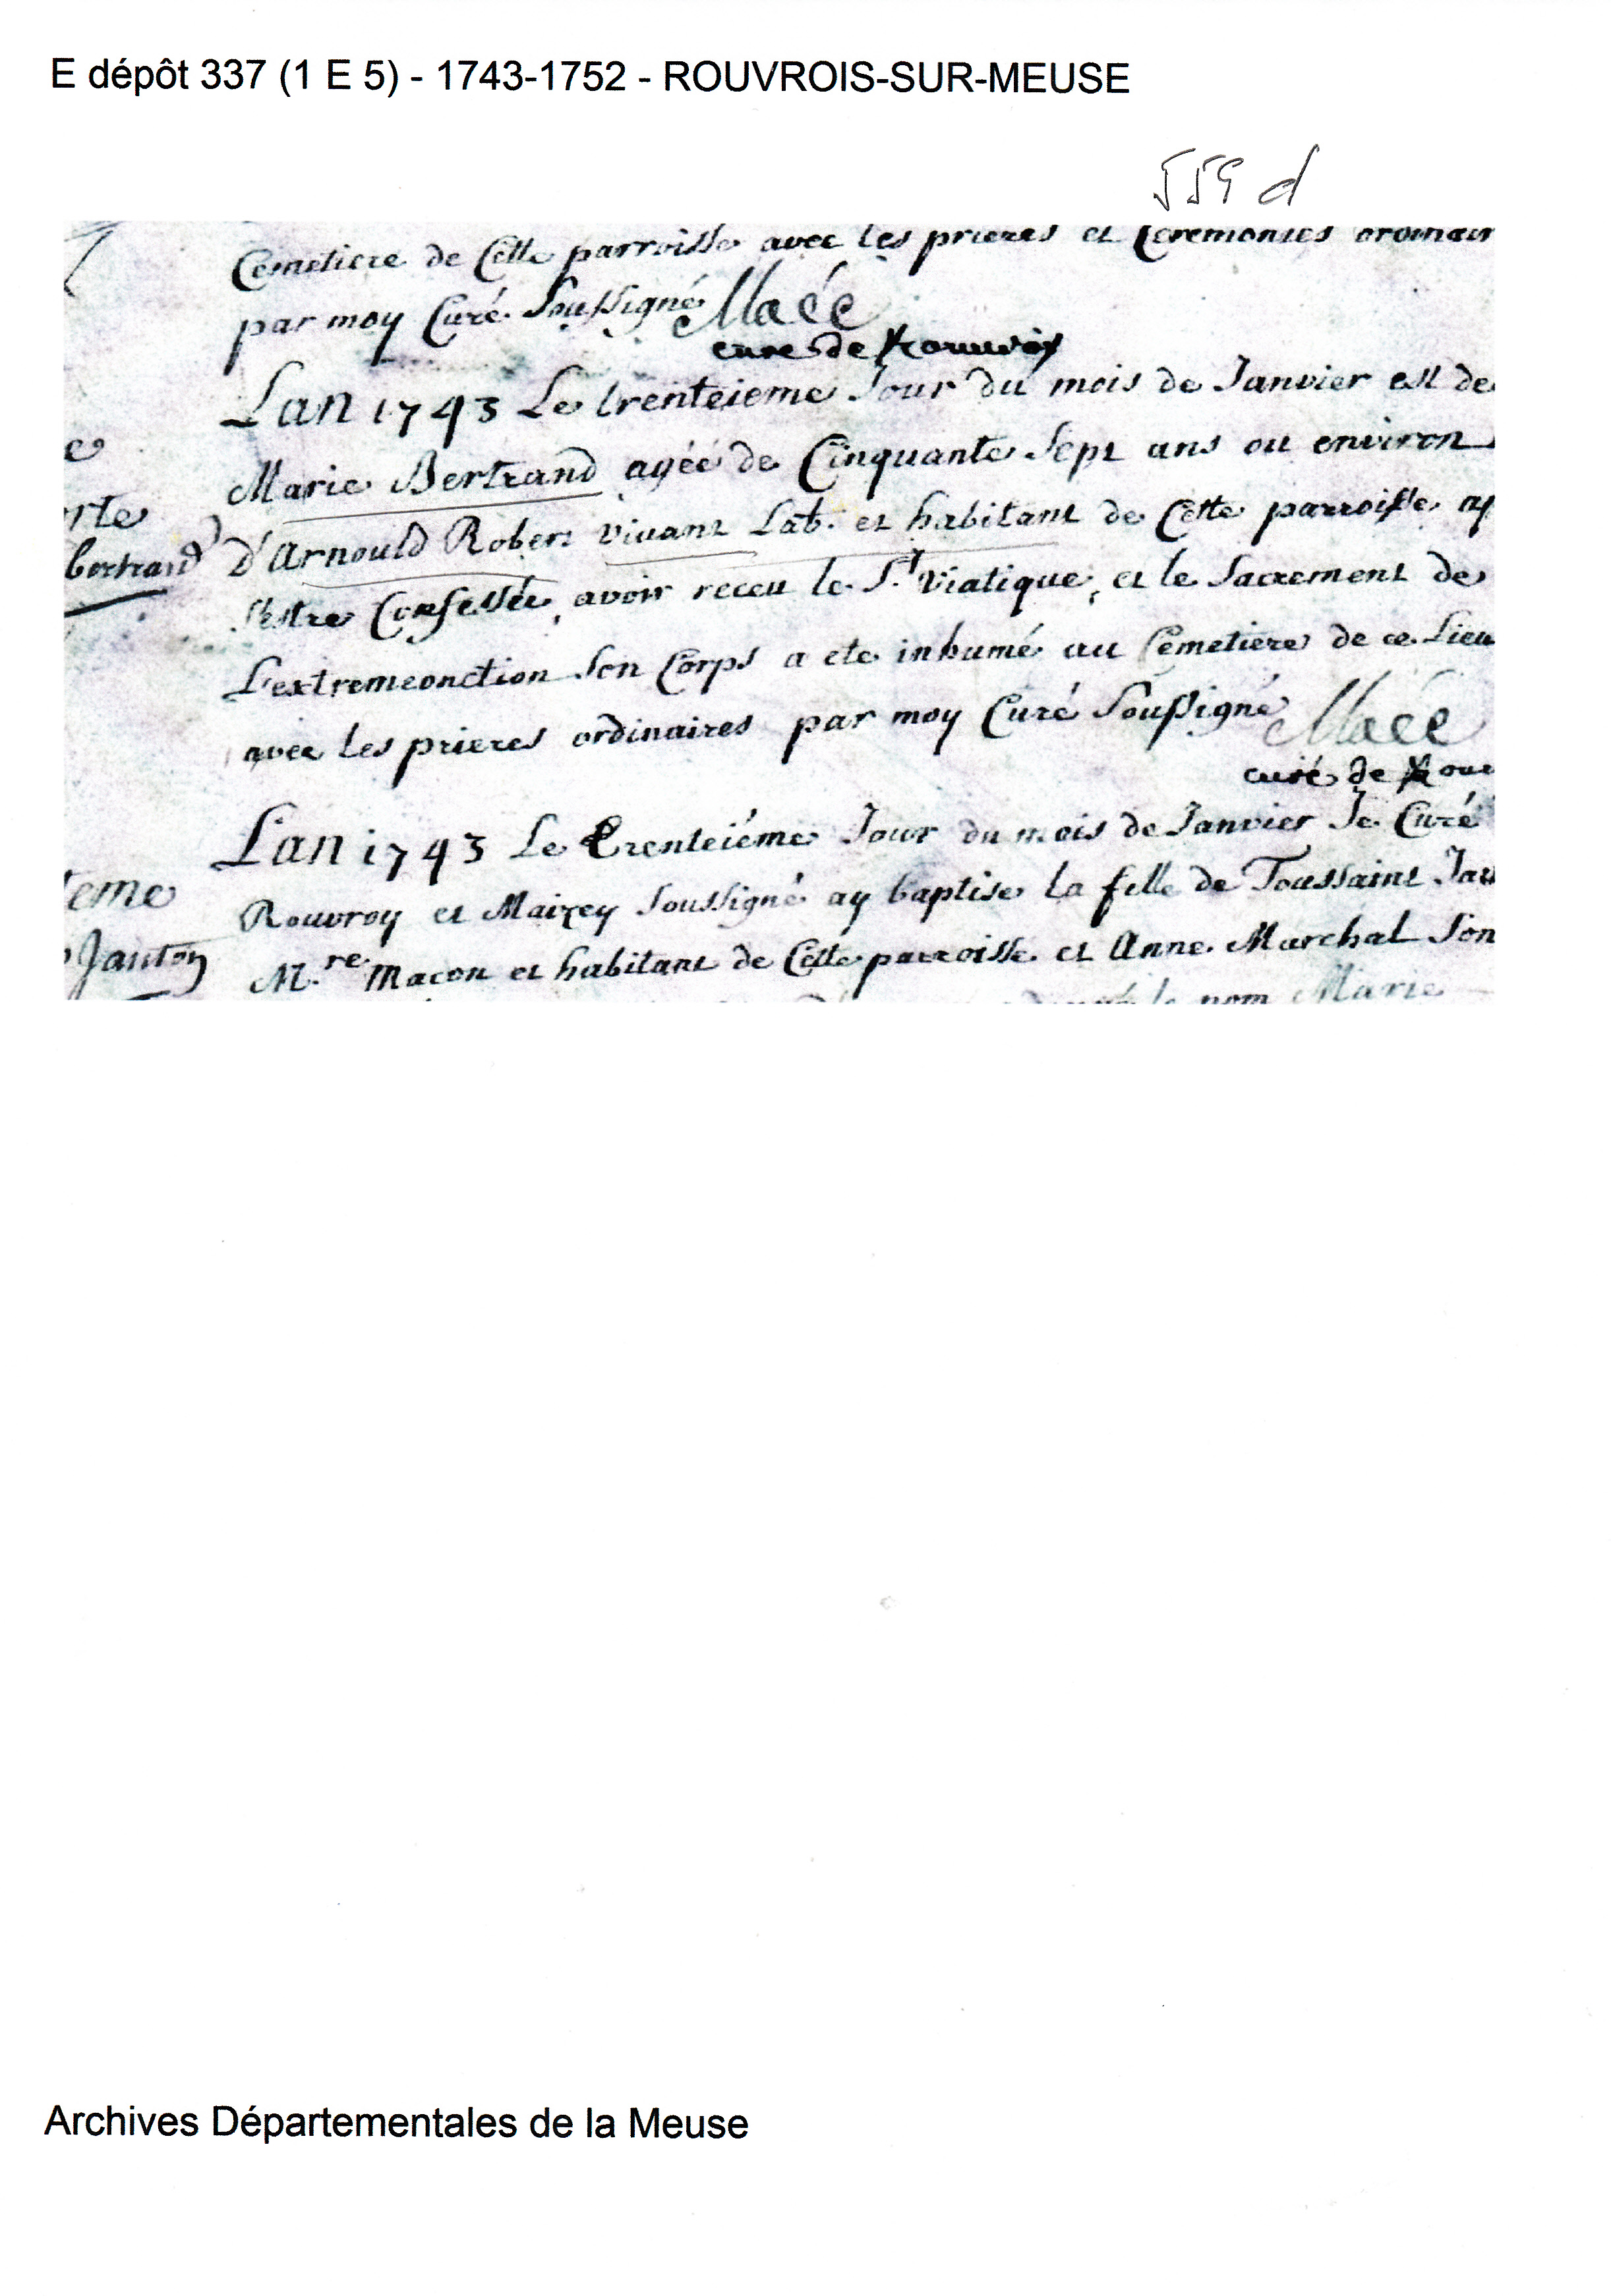 E dépôt 337 (1 E 5) - 1743-1752 - ROUVROIS-SUR-MEUSE
559 d
Cemetiere de Cette parroisse avec les prieres et Ceremonies ordinair
par moy Curé Soussigné Maée
curé de Rouvroy
Lan 1743 Le trenteieme Jour du mois de Janvier est de
Marie Bertrand agéé de Cinquante Sept ans ou environ
rte
bertrand
d'Arnould Robert vivant Lab. et habitant de Cette parroisse ap
s'estre Confessée, avoir receu le St Viatique, et le Sacrement de
L'extremeonction Son Corps a ete inhumé au Cemetiere de ce Lieu
avec les prieres ordinaires par moy Curé Soussigné Maée
curé de Rouv
L'an 1743 Le trenteiéme Jour du mois de Janvier Je Curé
teme
Rouvroy et Maizey Soussigné ay baptise la fille de Toussaint Jau
Jauton
M.re Macon et habitant de Cette parroisse et Anne Marchal Son
le nom Marie
Archives Départementales de la Meuse